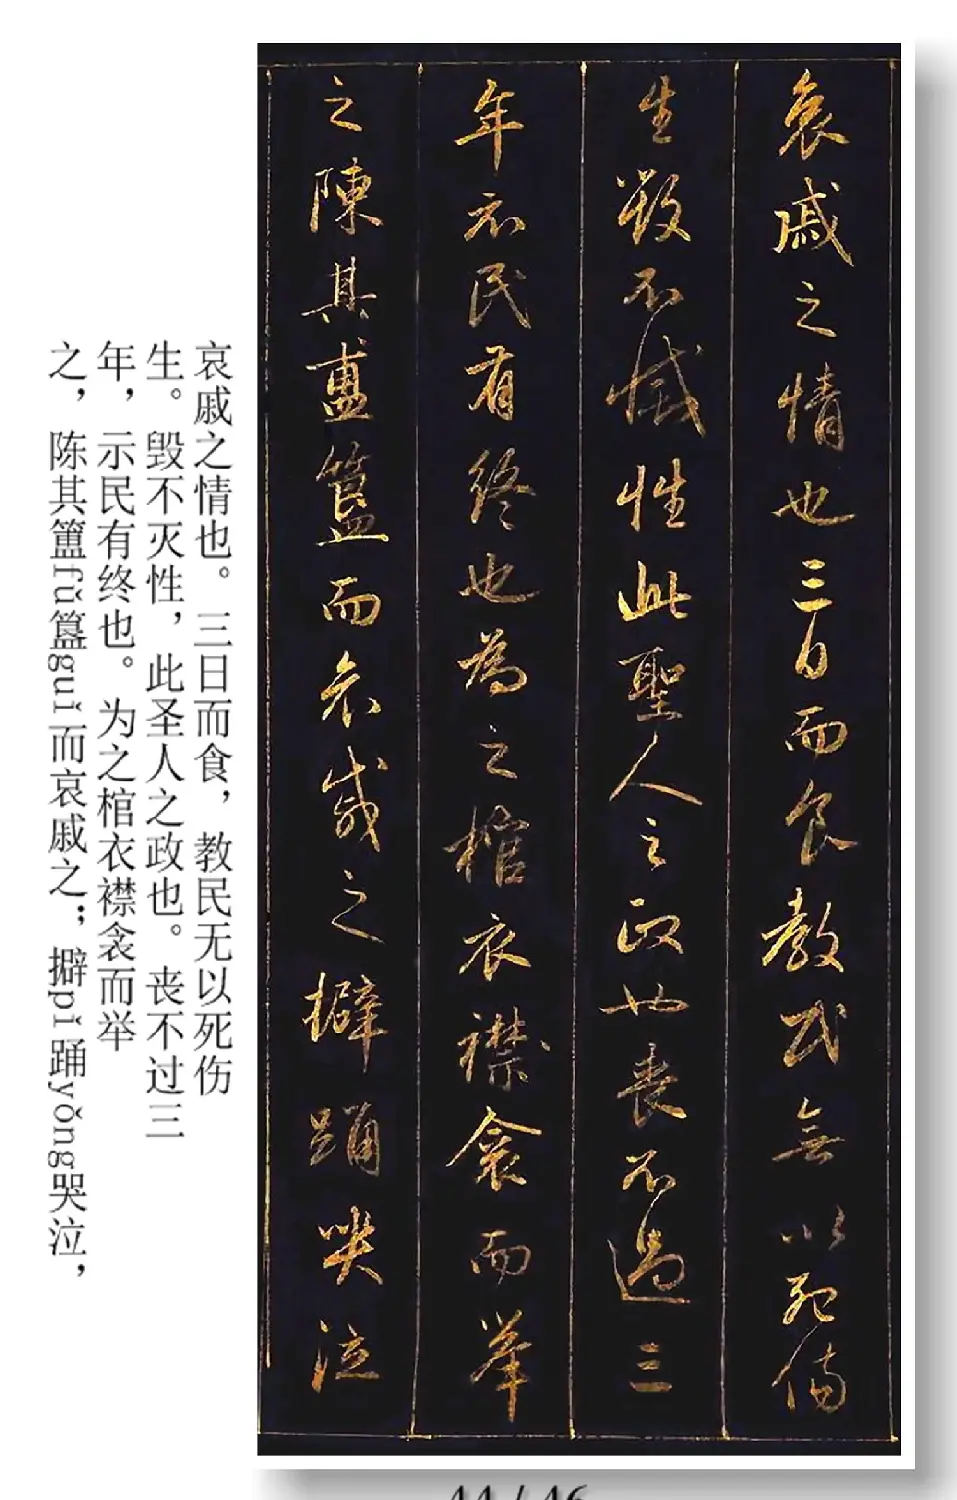 哀戚之情也三日而食教民無以死傷
生毀不滅性此聖人之政也喪不過三
年示民有终也為之棺衣襟衾而举
之陳其簠簋而哀戚之擗踊哭泣
哀戚之情也。三日而食，教民无以死伤
生。毁不灭性，此圣人之政也。丧不过三
年，示民有终也。为之棺衣襟衾而举
之，陈其簠fǔ簋guǐ而哀戚之；擗pǐ踊yǒng哭泣，
44 / 46